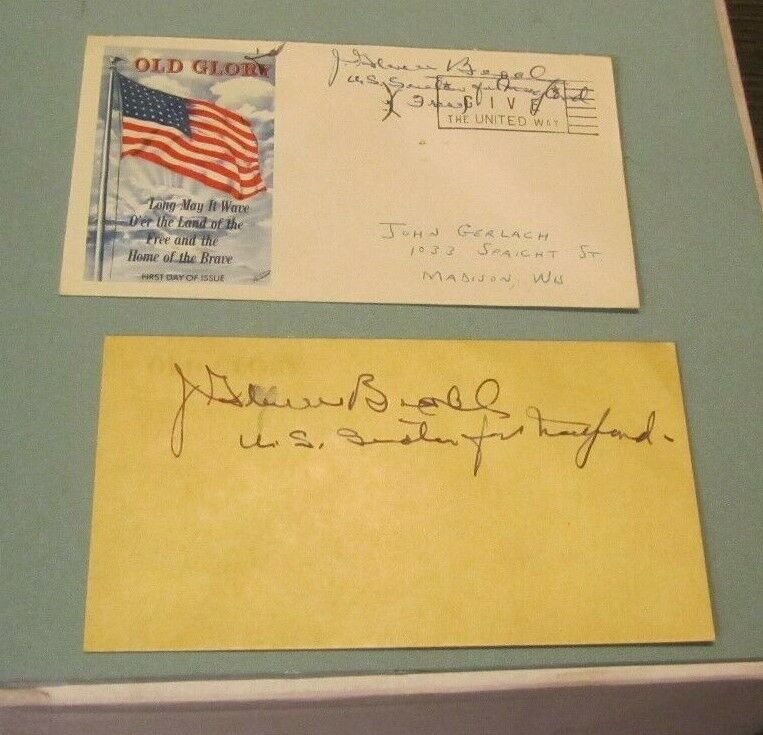 OLD GLORY
Long May It Wave
O'er the Land of the
Free and the
Home of the Brave
FIRST DAY OF ISSUE
J. Glenn Beall
U.S. Senator for Maryland
GIVE
THE UNITED WAY
JOHN GERLACH
1033 SPAIGHT ST
MADISON, WIS
J. Glenn Beall
U.S. Senator for Maryland